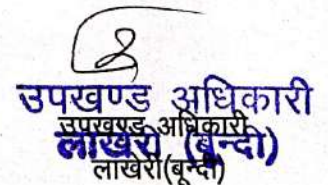 उपखण्ड अधिकारी
उपखण्ड अधिकारी
लाखेरी (बून्दी)
लाखेरी(बून्दी)